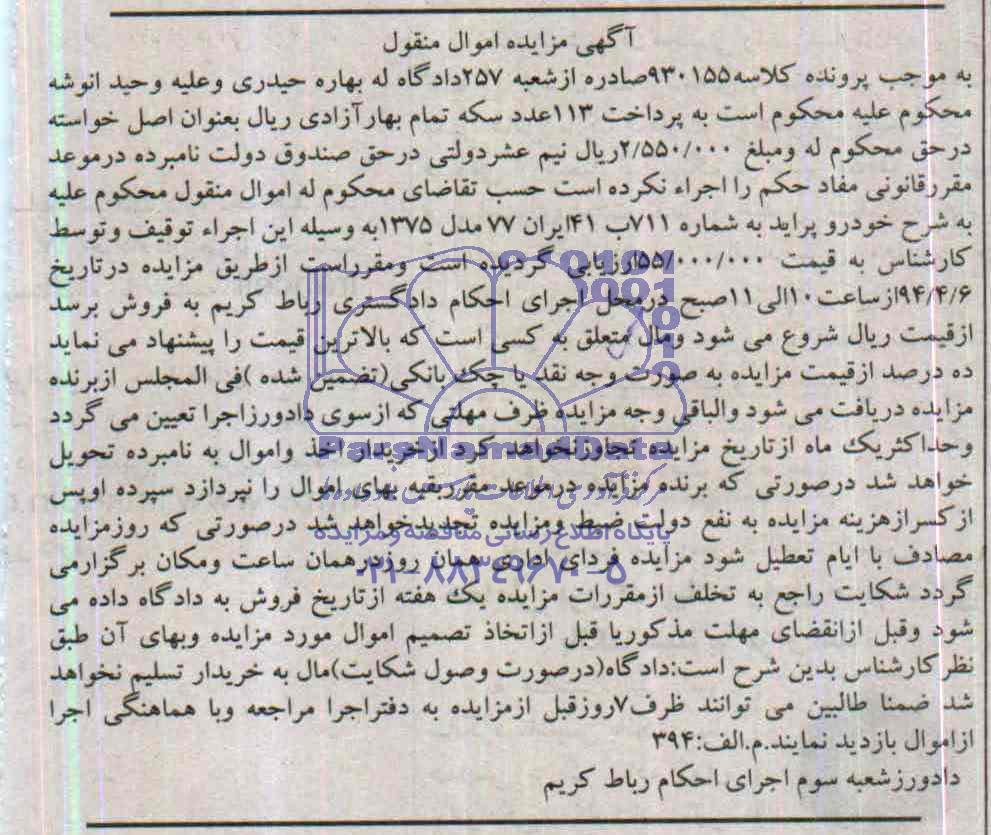 آگهی مزایده اموال منقول
به موجب پرونده کلاسه۹۳۰۱۵۵صادره ازشعبه ۲۵۷دادگاه له بهاره حیدری وعلیه وحید انوشه
محکوم علیه محکوم است به پرداخت ۱۱۳عدد سکه تمام بهارآزادی ریال بعنوان اصل خواسته
درحق محکوم له ومبلغ ۲/۵۵۰/۰۰۰ریال نیم عشردولتی درحق صندوق دولت نامبرده درموعد
مقررقانونی مفاد حکم را اجراء نکرده است حسب تقاضای محکوم له اموال منقول محکوم علیه
به شرح خودرو پراید به شماره ۷۱۱ب ۴۱ایران ۷۷ مدل ۱۳۷۵به وسیله این اجراء توقیف وتوسط
کارشناس به قیمت ۵۵/۰۰۰/۰۰۰ارزیابی گردیده است ومقرراست ازطریق مزایده درتاریخ
۹۴/۴/۶ازساعت۱۰الی۱۱صبح درمحل اجرای احکام دادگستری رباط کریم به فروش برسد
ازقیمت ریال شروع می شود ومال متعلق به کسی است که بالاترین قیمت را پیشنهاد می نماید
ده درصد ازقیمت مزایده به صورت وجه نقد یا چک بانکی(تضمین شده )فی المجلس ازبرنده
مزایده دریافت می شود والباقی وجه مزایده ظرف مهلتی که ازسوی دادورزاجرا تعیین می گردد
وحداکثریک ماه ازتاریخ مزایده تجاوزنخواهد کرد ازخریدار اخذ واموال به نامبرده تحویل
خواهد شد درصورتی که برنده مزایده درموعد مقرربقیه بهای اموال را نپردازد سپرده اوپس
ازکسرازهزینه مزایده به نفع دولت ضبط ومزایده تجدیدخواهد شد درصورتی که روزمزایده
مصادف با ایام تعطیل شود مزایده فردای اداری همان روزدرهمان ساعت ومکان برگزارمی
گردد شکایت راجع به تخلف ازمقررات مزایده یک هفته ازتاریخ فروش به دادگاه داده می
شود وقبل ازانقضای مهلت مذکوریا قبل ازاتخاذ تصمیم اموال مورد مزایده وبهای آن طبق
نظرکارشناس بدین شرح است:دادگاه(درصورت وصول شکایت)مال به خریدار تسلیم نخواهد
شد ضمنا طالبین می توانند ظرف۷روزقبل ازمزایده به دفتراجرا مراجعه وبا هماهنگی اجرا
ازاموال بازدید نمایند.م.الف:۳۹۴
دادورزشعبه سوم اجرای احکام رباط کریم
ParsNamadData
پایگاه اطلاع رسانی مناقصه ومزایده
۰۲۱-۸۸۳۴۹۶۷۰-۵